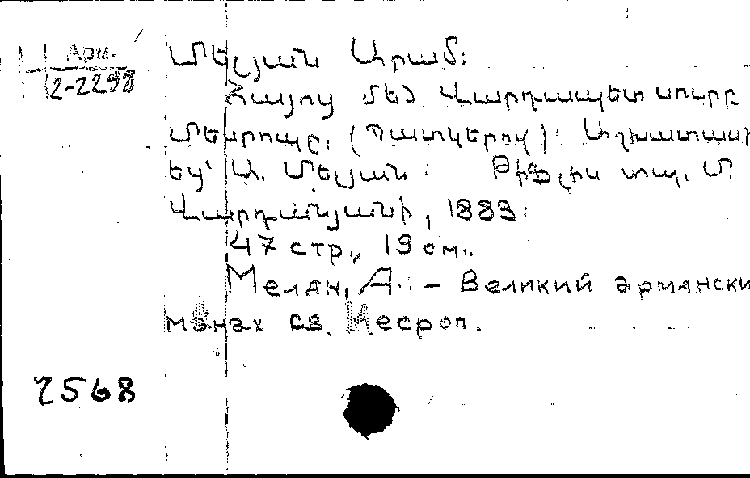 Арм.
2-2298
Մելյան Արամ:
Հայոց մեծ վարդապետ սուրբ
Մեսրոպը. (Պատկերով): Աշխատասի
եց՝ Ա. Մելյան: Թիֆլիս տպ. Մ
Վարդանյանի, 1883:
47 стр., 19 см.
Мелян, А. – Великий армянски
монах св. Месроп.
2568